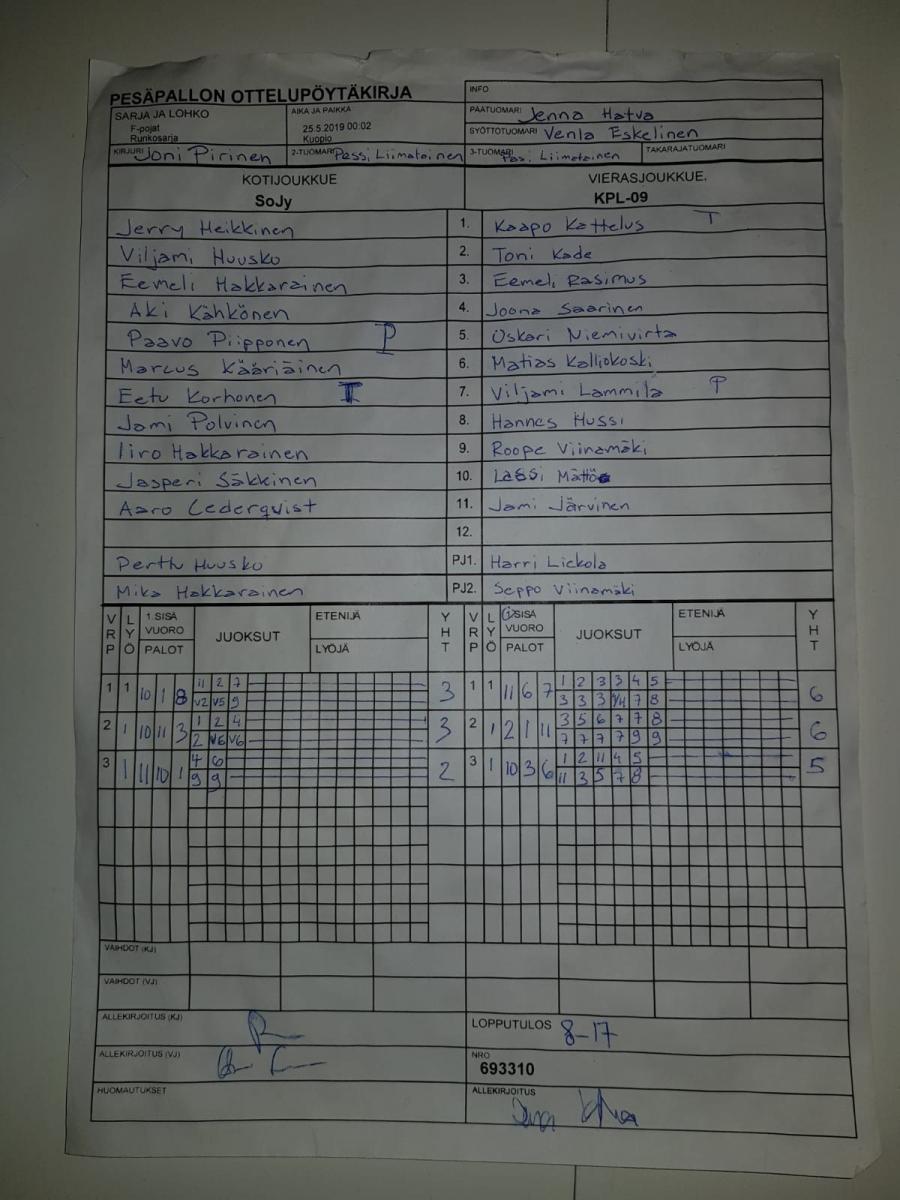 PESÄPALLON OTTELUPÖYTÄKIRJA
INFO
SARJA JA LOHKO
F-pojat
Runkosarja
AIKA JA PAIKKA
25.5.2019 00:02
Kuopio
PÄÄTUOMARI Jenna Hatva
SYÖTTÖTUOMARI Venla Eskelinen
KIRJURI Joni Pirinen 2-TUOMARI Passi Liimatainen 3-TUOMARI Pasi Liimatainen TAKARAJATUOMARI
KOTIJOUKKUE VIERASJOUKKUE.
SoJy KPL-09
Jerry Heikkinen 1. Kaapo Kattelus T
Viljami Huusko 2. Toni Kade
Eemeli Hakkarainen 3. Eemeli Rasimus
Aki Kähkönen 4. Joona Saarinen
Paavo Piipponen P 5. Oskari Niemivirta
Marcus Kääriäinen 6. Matias Kalliokoski
Eetu Korhonen T 7. Viljami Lammila P
Jami Polvinen 8. Hannes Hussi
Iiro Hakkarainen 9. Roope Viinamäki
Jasperi Säkkinen 10. Lassi
Aaro Cederqvist 11. Jami Järvinen
12.
Perttu Huusko PJ1. Harri Lickola
Mika Hakkarainen PJ2. Seppo Viinamäki
VRP LYÖ 1.SISÄ VUORO PALOT JUOKSUT ETENIJÄ LYÖJÄ YHT VRP LYÖ SISÄ VUORO PALOT JUOKSUT ETENIJÄ LYÖJÄ YHT
1 1 10 1 8 11 2 7 3 1 1 11 6 7 1 2 3 3 4 5 6
V2 V5 9 3 3 3 V4 7 8
2 1 10 11 3 1 2 4 3 2 1 2 1 11 3 5 6 7 7 8 6
2 V6 V6 7 7 7 7 9 9
3 1 11 10 1 4 6 2 3 1 10 3 6 1 2 11 4 5 5
9 9 11 3 5 7 8
VAIHDOT (KJ)
VAIHDOT (VJ)
ALLEKIRJOITUS (KJ) LOPPUTULOS 8-17
ALLEKIRJOITUS (VJ) NRO
693310
HUOMAUTUKSET ALLEKIRJOITUS